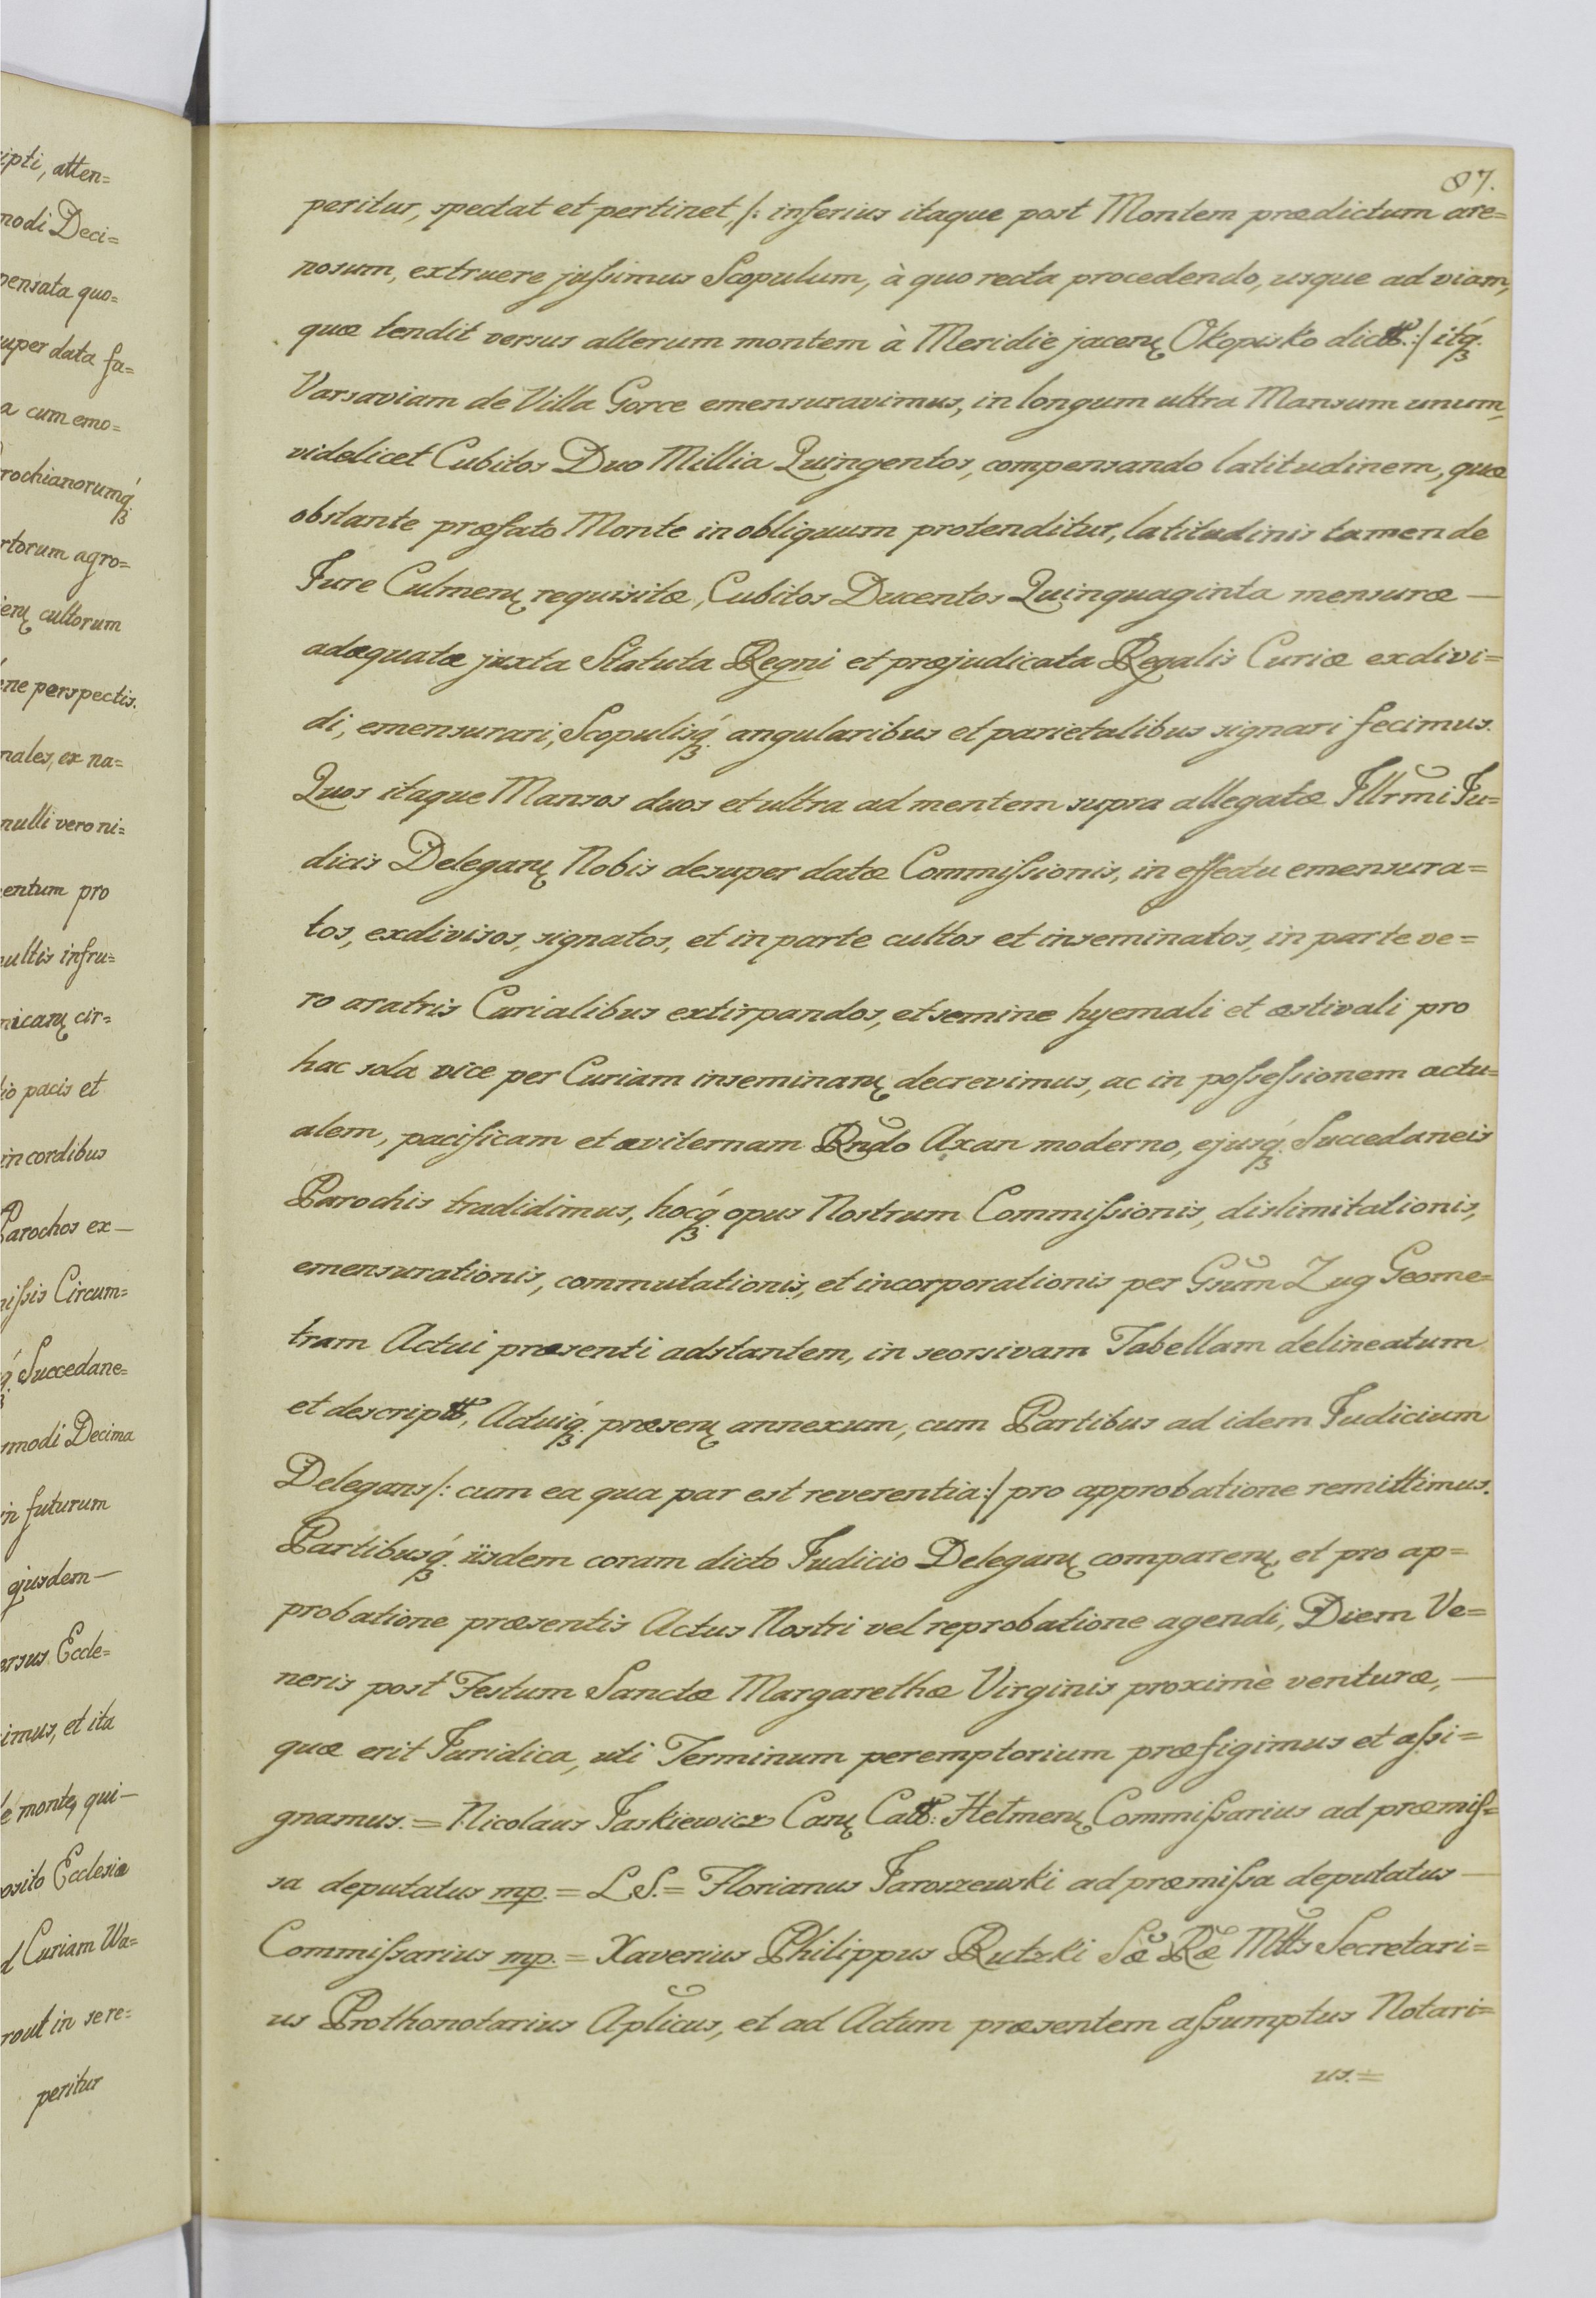 ipti, atten=
modi Deci=
pensata quo=
uper data fa=
a cum emo=
rochianorumq́ꝫ
rtorum agro=
ienꝶ cultorum
ene perspectis.
nales, ex na=
nulli vero ni=
entum pro
ultis infru=
nicanꝶ cir=
io pacis et
in cordibus
Parochos ex—
issis Circum=
q́ꝫ Succedane=
modi Decima
in futurum
ejusdem—
ersus Eccle=
imus, et ita
e monte, qui—
osito Ecclesiæ
d Curiam Wa=
rout in sere=
peritur
87.
peritur, spectat et pertinet /: inferius itaque post Montem prædictum are=
nosum, extruere jussimus Scopulum, à quo recta procedendo, usque ad viam,
quæ tendit versus alterum montem à Meridie jacenꝶ Okopisko dictt.:/ itq́ꝫ.
Varsaviam de Villa Gorce emensuravimus, in longum ultra Mansum unum,
videlicet Cubitos Duo Millia Quingentos, compensando latitudinem, quæ
obstante præfato Monte in obliquum protenditur, latitudinis tamen de
Jure Culmenꝶ requisitæ, Cubitos Ducentos Quinquaginta mensuræ —
adæquatæ juxta Statuta Regni et præjudicata Regalis Curiæ exdivi=
di, emensurari, Scopulisq́ꝫ. angularibus et parietalibus signari fecimus.
Quos itaque Mansos duos et ultra ad mentem supra allegatæ Illrmi Ju=
dicis Deleganꝶ Nobis desuper datæ Commissionis, in effectu emensura=
tos, exdivisos, signatos, et in parte cultos et inseminatos, in parte ve=
ro aratris Curialibus extirpandos, et semine hyemali et æstivali pro
hac sola vice per Curiam inseminanꝶ decrevimus, ac in possessionem actu=
alem, pacificam et æviternam Rndo Axan moderno, ejusq́ꝫ. Succedaneis
Parochis tradidimus, hocq́ꝫ. opus Nostrum Commissionis, dislimitationis,
emensurationis, commutationis, et incorporationis per Gsum Zug Geome=
tram Actui præsenti adstantem, in seorsivam Tabellam delineatum
et descriptt, Actuiq́ꝫ. præsenꝶ annexum, cum Partibus ad idem Judicium
Delegans /: cum ea qua par est reverentia:/ pro approbatione remittimus.
Partibusq́ꝫ. iisdem coram dicto Judicio Deleganꝶ comparenꝶ et pro ap=
probatione præsentis Actus Nostri vel reprobatione agendi, Diem Ve=
neris post Festum Sanctæ Margarethæ Virginis proximè venturæ, —
quæ erit Juridica, uti Terminum peremptorium præfigimus et assi=
gnamus. = Nicolaus Jaskiewicz Canꝶ Catt: Helmenꝶ Commissarius ad præmis=
sa deputatus mp. = L.S. = Florianus Jaroszewski ad præmissa deputatus —
Commissarius mp. = Xaverius Philippus Rutzki Sæ Ræ Mtts Secretari=
us Prothonotarius Aplicus, et ad Actum præsentem assumptus Notari=
us. =